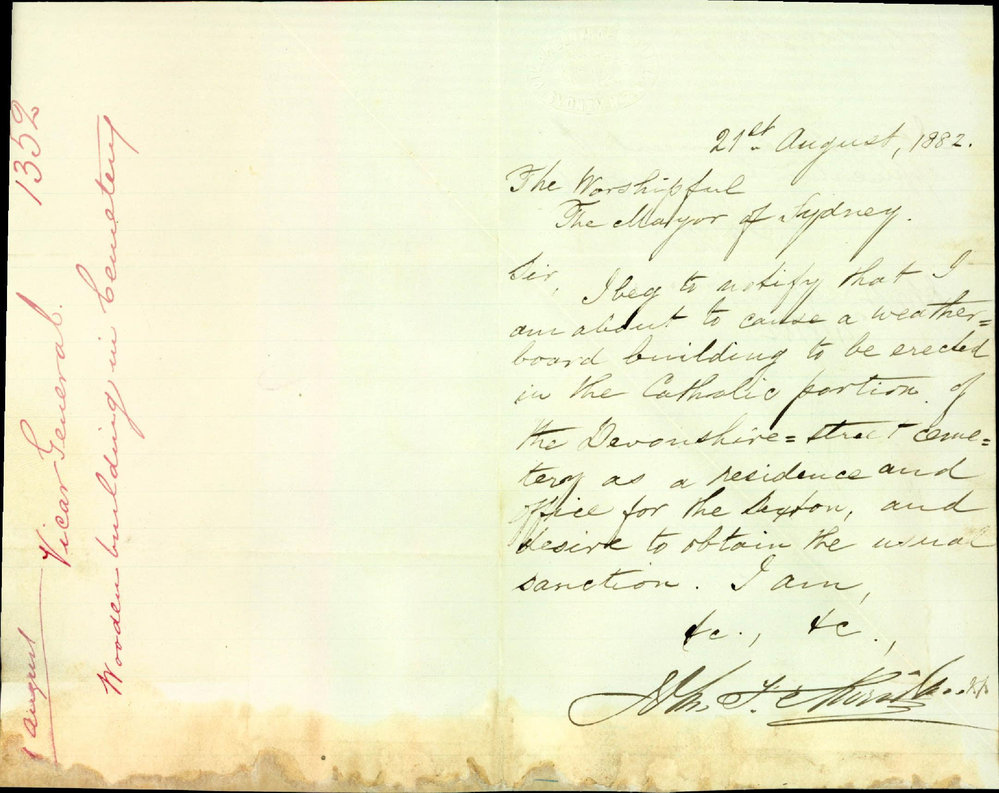 21st August, 1882.
The Worshipful
The Mayor of Sydney.
Sir,
I beg to notify that I
am about to cause a weather=
board building to be erected
in the Catholic portion of
the Devonshire=street ceme=
tery as a residence and
office for the Sexton, and
desire to obtain the usual
sanction. I am,
&c., &c.,
Jno. F.
1352
August
Vicar General.
Wooden building in Cemetery